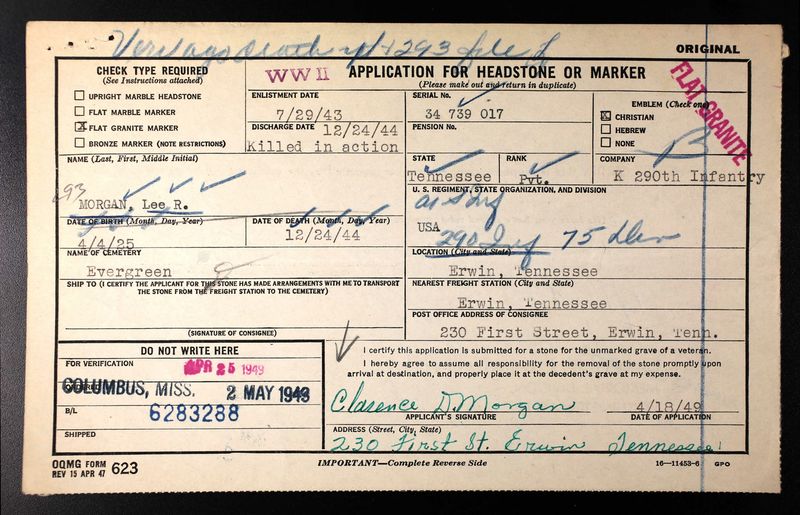 ORIGINAL
CHECK TYPE REQUIRED
(See Instructions attached)
WW II
APPLICATION FOR HEADSTONE OR MARKER
(Please make out and return in duplicate)
FLAT GRANITE
UPRIGHT MARBLE HEADSTONE
FLAT MARBLE MARKER
X FLAT GRANITE MARKER
BRONZE MARKER (NOTE RESTRICTIONS)
ENLISTMENT DATE
7/29/43
DISCHARGE DATE 12/24/44
Killed in action
SERIAL No.
34 739 017
PENSION No.
EMBLEM (Check one)
X CHRISTIAN
HEBREW
NONE
NAME (Last, First, Middle Initial)
293
MORGAN, Lee R.
STATE
Tennessee
RANK
Pvt.
COMPANY
K 290th Infantry
U. S. REGIMENT, STATE ORGANIZATION, AND DIVISION
USA
290 Inf 75 Div
DATE OF BIRTH (Month, Day, Year)
4/4/25
DATE OF DEATH (Month, Day, Year)
12/24/44
NAME OF CEMETERY
Evergreen
LOCATION (City and State)
Erwin, Tennessee
SHIP TO (I CERTIFY THE APPLICANT FOR THIS STONE HAS MADE ARRANGEMENTS WITH ME TO TRANSPORT
THE STONE FROM THE FREIGHT STATION TO THE CEMETERY)
NEAREST FREIGHT STATION (City and State)
Erwin, Tennessee
POST OFFICE ADDRESS OF CONSIGNEE
230 First Street, Erwin, Tenn.
(SIGNATURE OF CONSIGNEE)
DO NOT WRITE HERE
FOR VERIFICATION
APR 25 1949
COLUMBUS, MISS. 2 MAY 1949
B/L
6283288
SHIPPED
I certify this application is submitted for a stone for the unmarked grave of a veteran.
I hereby agree to assume all responsibility for the removal of the stone promptly upon
arrival at destination, and properly place it at the decedent's grave at my expense.
Clarence D. Morgan
4/18/49
APPLICANT'S SIGNATURE
DATE OF APPLICATION
ADDRESS (Street, City, State)
230 First St. Erwin Tennessee
OQMG FORM
REV 15 APR 47 623
IMPORTANT—Complete Reverse Side
16—11453-6 GPO